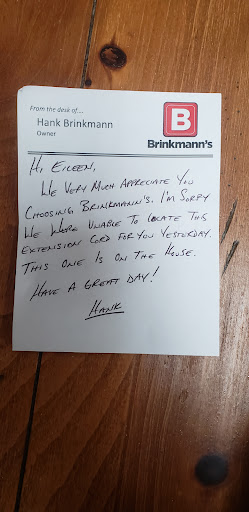 From the desk of....
Hank Brinkmann
Owner
B
Brinkmann's
Hi Eileen,
We Very Much Appreciate You
Choosing Brinkmann's. I'm Sorry
We Were Unable To Locate This
Extension Cord For You Yesterday.
This One Is On The House.
Have A Great Day!
Hank